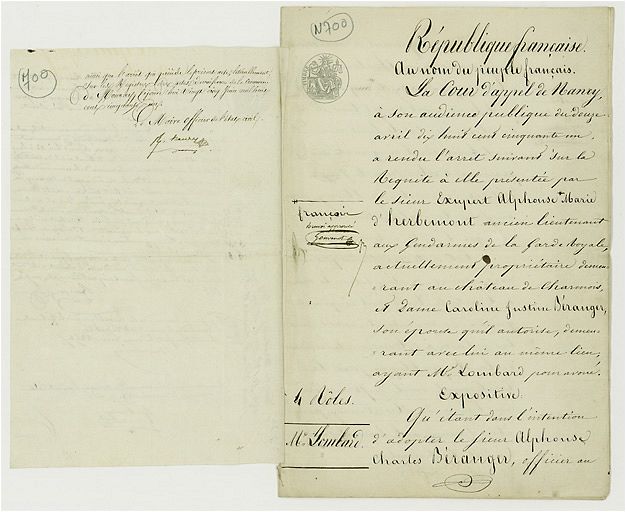 700
ainsi que l'arrêt qui précède
sur les Registres
de Mouzay
cent cinquante
Le Maire officier de l'état civil
N 700
République française.
Au nom du peuple français.
La Cour d'appel de Nancy,
à son audience publique du douze
avril dix huit cent cinquante un,
a rendu l'arrêt suivant sur la
Requête à elle présentée par
le sieur Exupert Alphonse Marie
d'herbemont ancien lieutenant
aux Gendarmes de la Garde Royale,
actuellement propriétaire demeu-
rant au château de Charmois,
et Dame Caroline Justine Béranger,
son épouse qu'il autorise, demeu-
rant avec lui au même lieu,
ayant Me Lombard pour avoué.
Expositive.
Qu'étant dans l'intention
d'adopter le sieur Alphonse
Charles Béranger, officier au
français
4 Rôles.
Me Lombard.